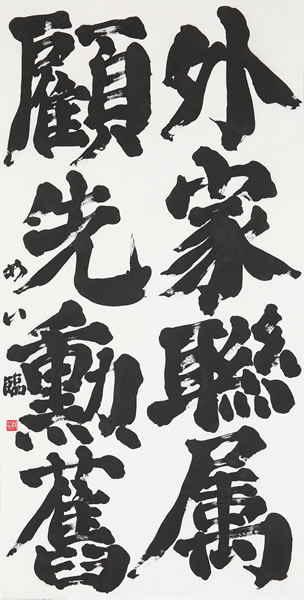 外家聯属
顧先勳舊
めい臨